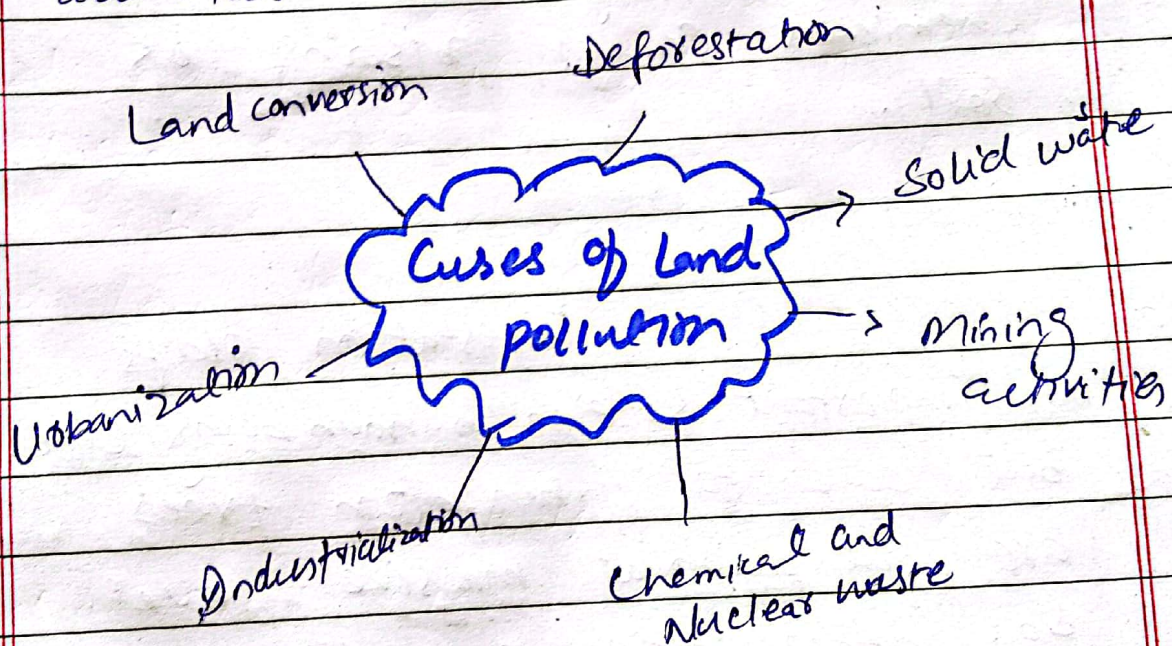 Deforestation
Land conversion
Solid waste
Cuses of Land
pollution
Mining
activities
Urbanization
Industrialization
Chemical and
Nuclear waste